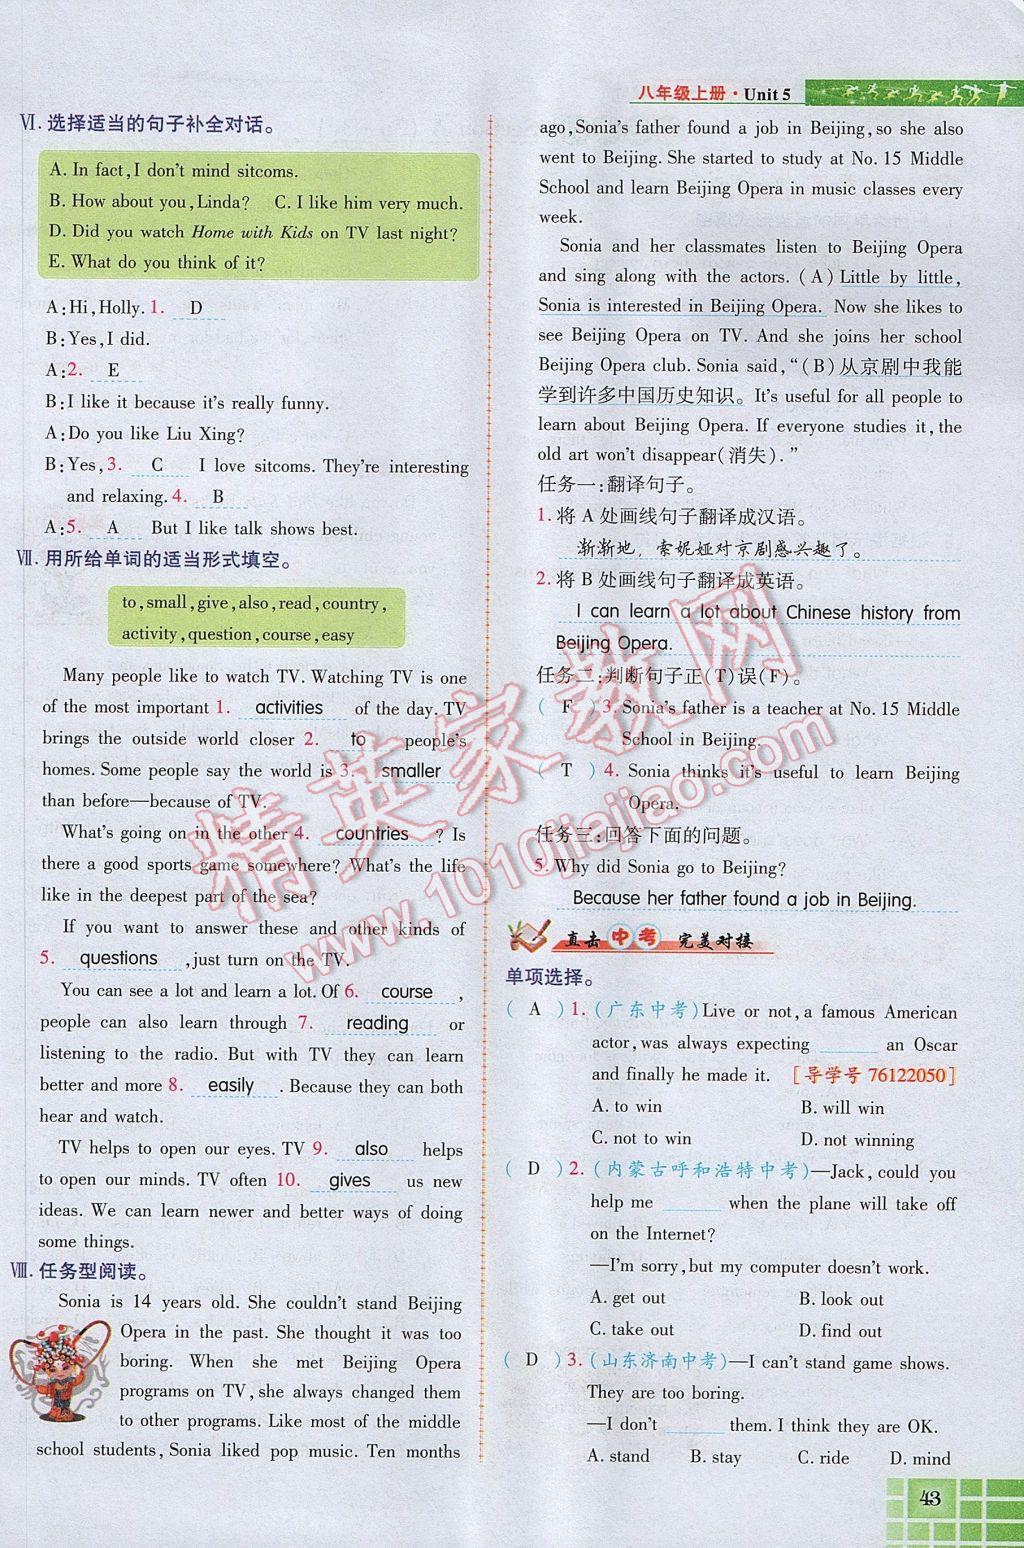 八年级上册·Unit 5
Ⅵ. 选择适当的句子补全对话。
A. In fact, I don't mind sitcoms.
B. How about you, Linda? C. I like him very much.
D. Did you watch Home with Kids on TV last night?
E. What do you think of it?
A: Hi, Holly. 1. D
B: Yes, I did.
A: 2. E
B: I like it because it's really funny.
A: Do you like Liu Xing?
B: Yes, 3. C I love sitcoms. They're interesting
and relaxing. 4. B
A: 5. A But I like talk shows best.
Ⅶ. 用所给单词的适当形式填空。
to, small, give, also, read, country,
activity, question, course, easy
Many people like to watch TV. Watching TV is one
of the most important 1. activities of the day. TV
brings the outside world closer 2. to people's
homes. Some people say the world is 3. smaller
than before—because of TV.
What's going on in the other 4. countries ? Is
there a good sports game somewhere? What's the life
like in the deepest part of the sea?
If you want to answer these and other kinds of
5. questions , just turn on the TV.
You can see a lot and learn a lot. Of 6. course ,
people can also learn through 7. reading or
listening to the radio. But with TV they can learn
better and more 8. easily . Because they can both
hear and watch.
TV helps to open our eyes. TV 9. also helps
to open our minds. TV often 10. gives us new
ideas. We can learn newer and better ways of doing
some things.
Ⅷ. 任务型阅读。
Sonia is 14 years old. She couldn't stand Beijing
Opera in the past. She thought it was too
boring. When she met Beijing Opera
programs on TV, she always changed them
to other programs. Like most of the middle
school students, Sonia liked pop music. Ten months
ago, Sonia's father found a job in Beijing, so she also
went to Beijing. She started to study at No. 15 Middle
School and learn Beijing Opera in music classes every
week.
Sonia and her classmates listen to Beijing Opera
and sing along with the actors. (A) Little by little,
Sonia is interested in Beijing Opera. Now she likes to
see Beijing Opera on TV. And she joins her school
Beijing Opera club. Sonia said, "(B)从京剧中我能
学到许多中国历史知识。It's useful for all people to
learn about Beijing Opera. If everyone studies it, the
old art won't disappear(消失)."
任务一:翻译句子。
1. 将 A 处画线句子翻译成汉语。
渐渐地，索妮娅对京剧感兴趣了。
2. 将 B 处画线句子翻译成英语。
I can learn a lot about Chinese history from
Beijing Opera.
任务二:判断句子正(T)误(F)。
( F )3. Sonia's father is a teacher at No. 15 Middle
School in Beijing.
( T )4. Sonia thinks it's useful to learn Beijing
Opera.
任务三:回答下面的问题。
5. Why did Sonia go to Beijing?
Because her father found a job in Beijing.
直击中考 完美对接
单项选择。
( A )1. (广东中考)Live or not, a famous American
actor, was always expecting ______ an Oscar
and finally he made it. [导学号 76122050]
A. to win B. will win
C. not to win D. not winning
( D )2. (内蒙古呼和浩特中考)—Jack, could you
help me ______ when the plane will take off
on the Internet?
—I'm sorry, but my computer doesn't work.
A. get out B. look out
C. take out D. find out
( D )3. (山东济南中考)—I can't stand game shows.
They are too boring.
—I don't ______ them. I think they are OK.
A. stand B. stay C. ride D. mind
43
精英家教网
www.1010jiajiao.com